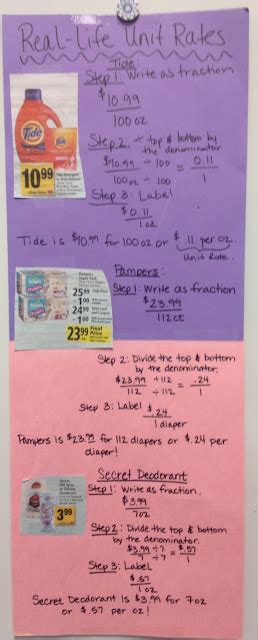 Real-Life Unit Rates
Tide
Step 1: Write as fraction
$10.99
100 oz
Step 2: ÷ top & bottom by
the denominator
$10.99 ÷ 100 = 0.11
100 oz ÷ 100 1
Step 3: Label
$0.11
1 oz
Tide
10.99
Tide is $10.99 for 100 oz or $.11 per oz.
Unit Rate
Pampers:
Step 1: Write as fraction
$23.99
112 ct
Pampers
25.99
1.00
24.99
1.00
23.99 Final Price
Step 2: Divide the top & bottom
by the denominator.
$23.99 ÷112 = .24
112 ÷112 1
Step 3: Label $.24
1 diaper
Pampers is $23.99 for 112 diapers or $.24 per
diaper!
Secret Deodorant
Step 1: Write as fraction.
$3.99
7oz
Secret
3.99
Step 2: Divide the top & bottom
by the denominator.
$3.99 ÷7 = $.57
7 ÷7 1
Step 3: Label
$.57
1 oz
Secret Deodorant is $3.99 for 7oz
or $.57 per oz!